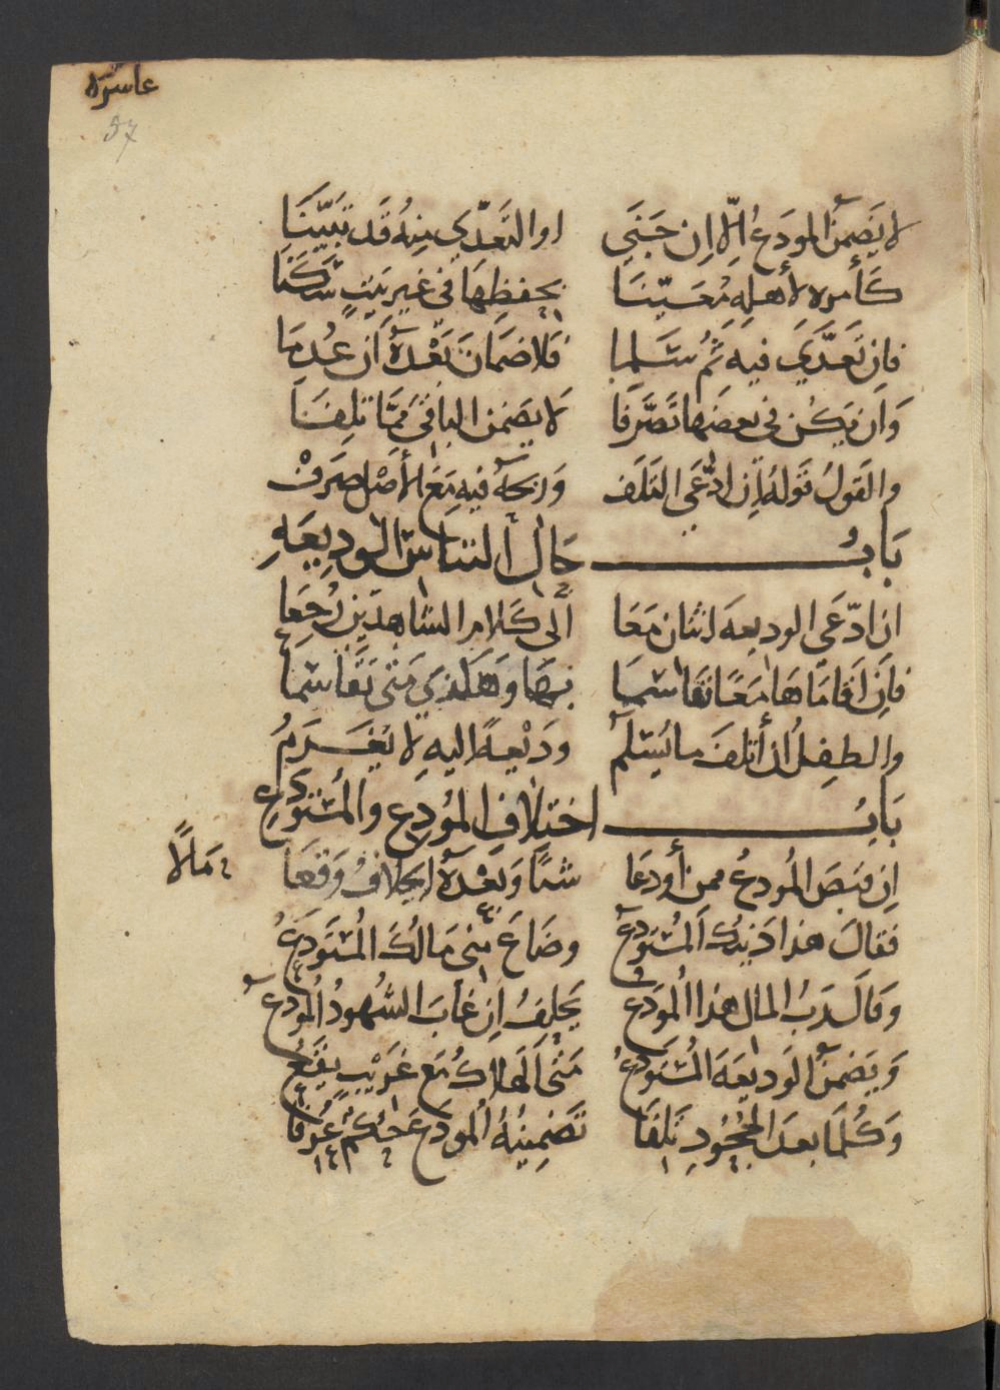 عاشرة
37
لا يَضمن المودَع إلّا إن جَنَي او التَعَدِّي مِنهُ قَد تَبَيّنَا
كَأمره لأهلِه مُعَيّنَا بحفظِهَا في غيرِ بَيتٍ سَكَنَا
فإن تَعَدَّيَ فيه ثُم سَلما فَلا ضمَانَ بَعْدَهُ ان عُدِمَا
وَان يَكُن في بعضِها تَصَّرفَا لَا يَضمن الباقي مِمّا تَلِفَا
والقَولُ قَولهُ إن ادّعَي التَلَف وَربحهُ فيهِ مَعَ الأصْل صرَفْ
بَابُ حَال التباس الوديعَهِ
ان ادّعَى الوديعهَ اثنان مَعَا الى كَلام الشاهدَين رُجِعَا
فإن اقامَاهَا مَعًا تقَاسمَا بهَا وهَكذي مَتى تَقَاسَمَا
والطفِلُ ان أتلفَ ما يُسَلّم وَديْعهً اليهِ لا يُغَرَّمُ
بَابُ اختِلافِ المُودِع والمُستَودَعِ
إن قبَضَ المُودعُ ممن أودعَا شئًا وَبَعْدهُ الخِلافُ وَقعَا
مَالاً
فقالَ هذا دَينك المُستَودَعُ وضَاعَ مِني مَالكَ المُستَودَعُ
وَقَالَ رَبُ المال هذا المُودَع يَحلِفُ إن غَابَ الشُهودُ المُودع
وَيَضمنُ الوديعَهَ المُستَودَعُ مَتىَ الهَلاك مَع غَريْبٍ يَقَعُ
وَكُلمَا بعدَ الجُحُودِ تَلفَا تَضمِينُهُ المُودَع حُكمٌ عُرِفَا